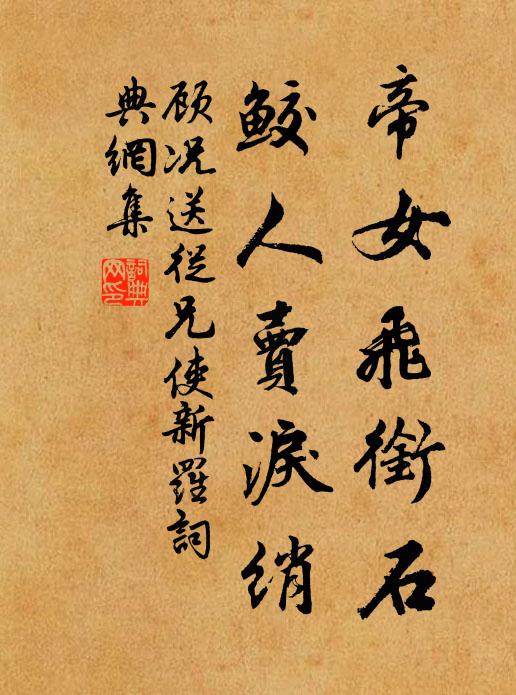 帝女飛銜石
鮫人賣淚綃
顾况送從兄使新羅詞
典網集
詞典網印